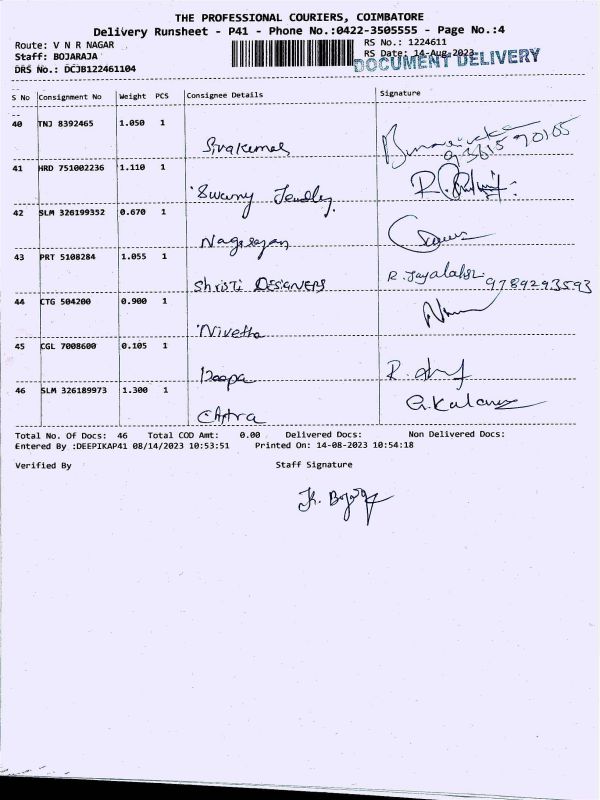 THE PROFESSIONAL COURIERS, COIMBATORE
Delivery Runsheet - P41 - Phone No.:0422-3505555 - Page No.:4
Route: V N R NAGAR RS No.: 1224611
Staff: BOJARAJA RS Date: 14-Aug-2023
DOCUMENT DELIVERY
DRS No.: DCJB122461104
S No Consignment No Weight PCS Consignee Details Signature
40 TNJ 8392465 1.050 1
Sivakumar
41 HRD 751002236 1.110 1
Swamy
42 SLM 326199352 0.670 1
Nagarajan
43 PRT 5108284 1.055 1 R. Jayalakshmi
Shristi DESIGNERS 9789293593
44 CTG 504200 0.900 1
Nivetha
45 CGL 7008600 0.105 1
Deepa
46 SLM 326189973 1.300 1
Chitra
Total No. Of Docs: 46 Total COD Amt: 0.00 Delivered Docs: Non Delivered Docs:
Entered By :DEEPIKAP41 08/14/2023 10:53:51 Printed On: 14-08-2023 10:54:18
Verified By Staff Signature